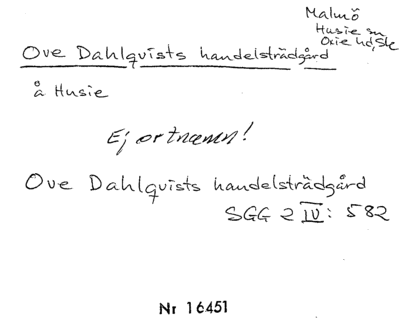 Malmö
Husie sn
Oxie hd, Sk
Ove Dahlqvists handelsträdgård
å Husie
Ej ortnamn!
Ove Dahlqvists handelsträdgård
SGG 2 IV: 582
Nr 16451